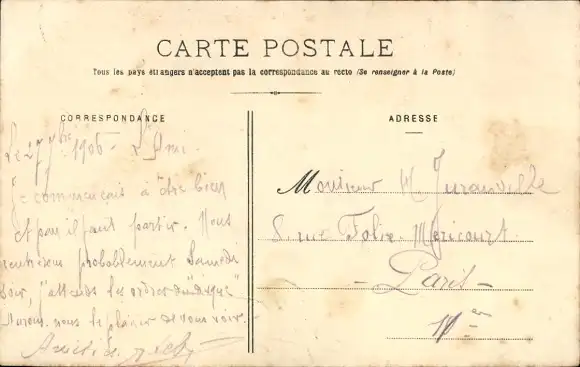 CARTE POSTALE
Tous les pays étrangers n'acceptent pas la correspondance au recto (Se renseigner à la Poste)
CORRESPONDANCE
ADRESSE
Le 27 1906 - L'Ami
Je commençais à être bien
et il faut partir. Nous
rentrerons probablement Samedi
soir, j'attends les ordres du
nous le plaisir de vous voir.
Monsieur M. Juranville
8. rue Folie-Méricourt
- Paris -